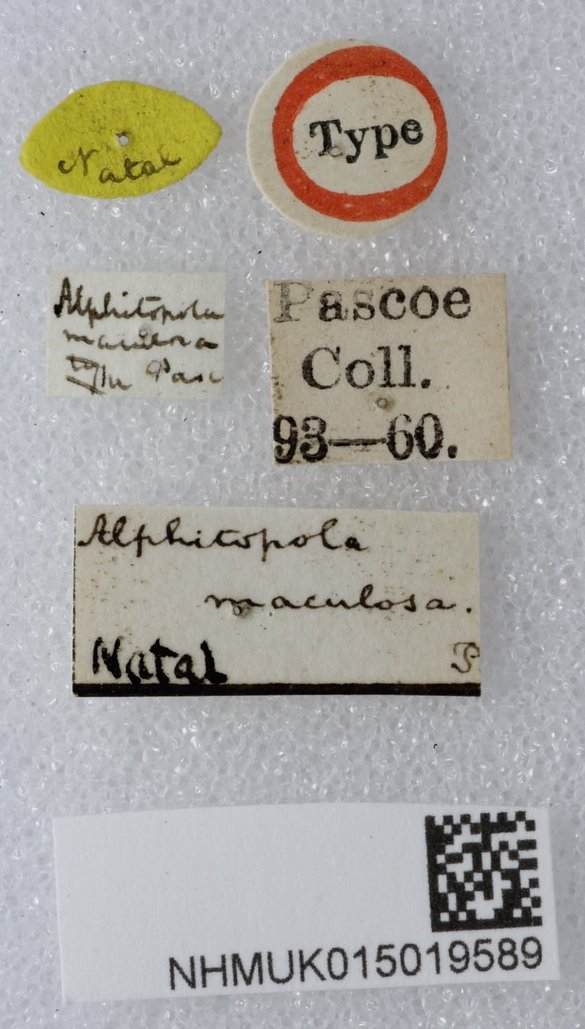 Natal
Type
Alphitopola
maculosa
Type Pasc
Pascoe
Coll.
93—60.
Alphitopola
maculosa.
Natal P
NHMUK015019589